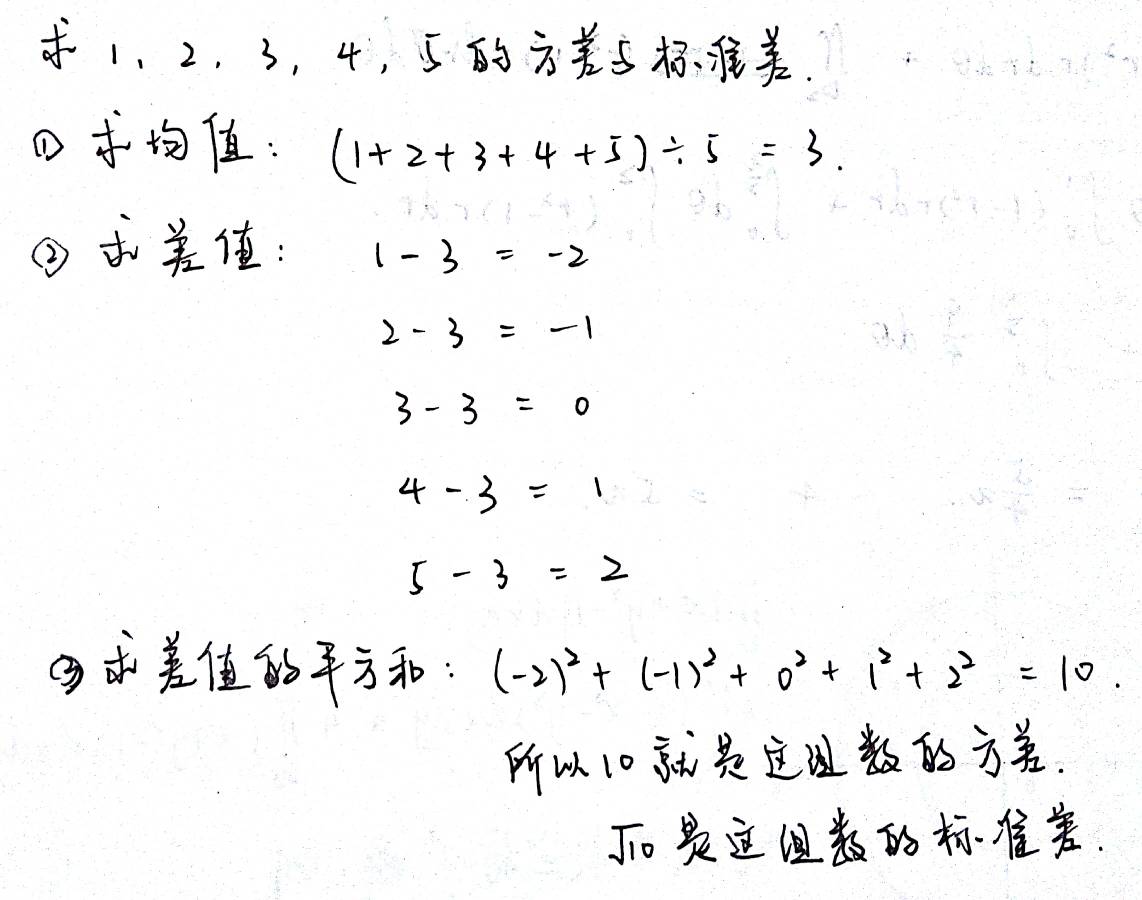 求 1, 2, 3, 4, 5 的方差与标准差.
① 求均值: (1+2+3+4+5)÷5 = 3.
② 求差值: 1-3 = -2
2-3 = -1
3-3 = 0
4-3 = 1
5-3 = 2
③ 求差值的平方和: (-2)²+(-1)²+0²+1²+2² = 10.
所以10就是这组数的方差.
√10 是这组数的标准差.